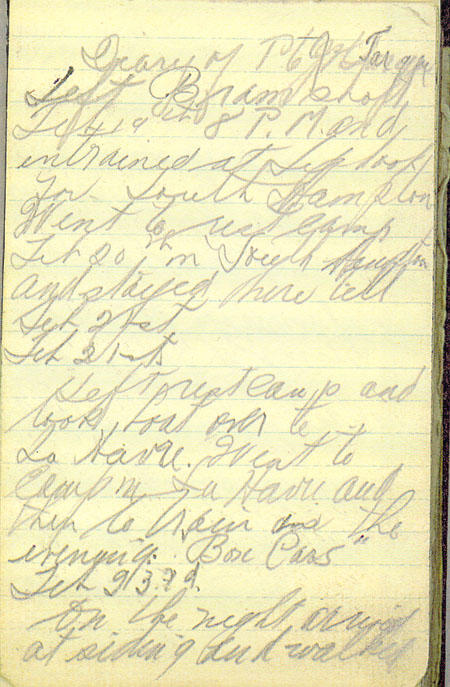 Diary of Pte
Left Bramshott
Feb 19th 8 P.M. and
entrained at Liphook
for South Hampton
Went to rest camp
Feb 20th in South Hampton
and stayed there till
Feb 21st
Feb 21st
Left rest camp and
took boat over to
La Havre. Went to
Camp in La Havre and
then to train in the
evening. "Box Cars"
Feb 23rd.
On the night arrived
at siding and walked